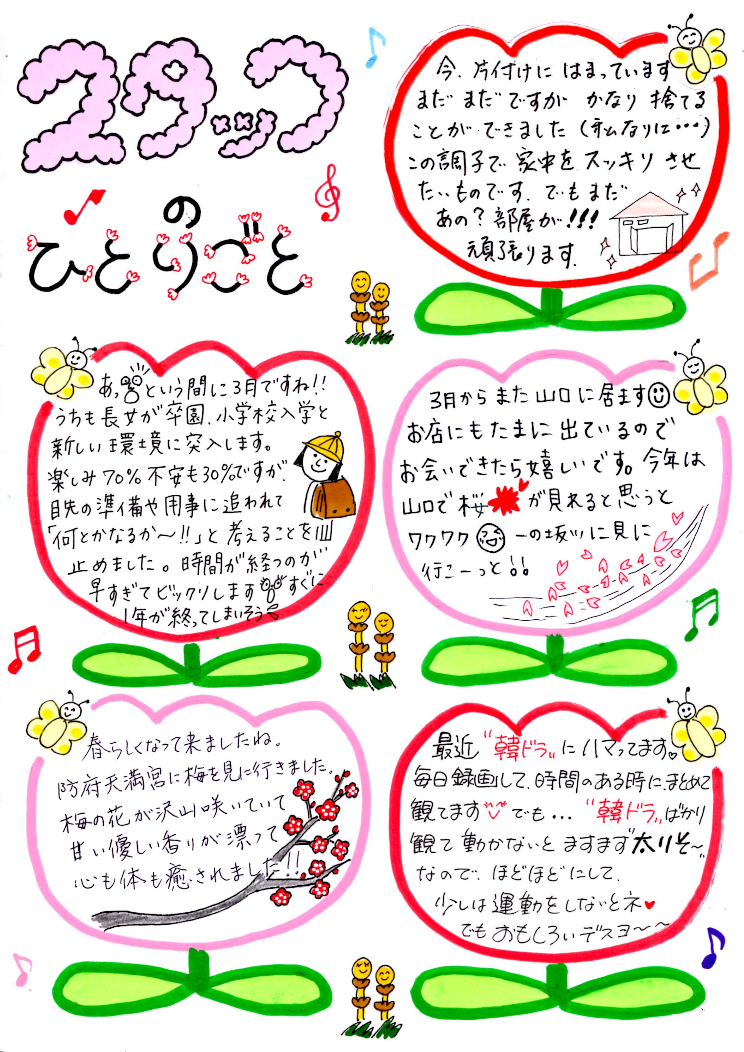 スタッフ
の
ひとりごと
今、片付けに はまっています
まだ まだ ですが かなり 捨てる
ことが できました (私なりに・・・)
この調子で 家中を スッキリ させ
たいものです。でもまだ
あの？部屋が!!!
頑張ります。
あっという間に3月ですね!!
うちも長女が卒園、小学校入学と
新しい環境に突入します。
楽しみ70% 不安も30%ですが、
目先の準備や用事に追われて
「何とかなるか〜!!」と 考えることを
止めました。時間が経つのが
早すぎてビックリします すぐに
1年が終ってしまいそう
3月から また 山口に居ます
お店にも たまに 出ているので
お会いできたら嬉しいです。今年は
山口で桜が見れると思うと
ワクワク 一の坂川に見に
行こーっと!!
春らしくなって来ましたね。
防府天満宮に梅を見に行きました。
梅の花が沢山咲いていて
甘い優しい香りが漂って
心も体も癒されました!!
最近“韓ドラ”にハマってます。
毎日録画して、時間のある時に、まとめて
観てます でも... “韓ドラ”ばかり
観て 動かないと ますます“太りそ〜”
なので、ほどほどにして、
少しは運動をしないとネ♥
でも おもしろいデスヨ〜〜